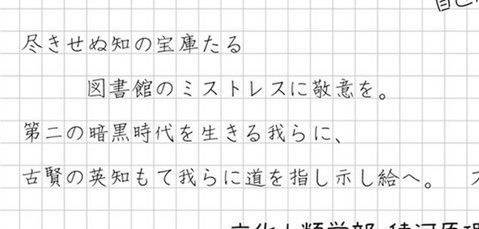 尽きせぬ知の宝庫たる
図書館のミストレスに敬意を。
第二の暗黒時代を生きる我らに、
古賢の英知もて我らに道を指し示し給へ。